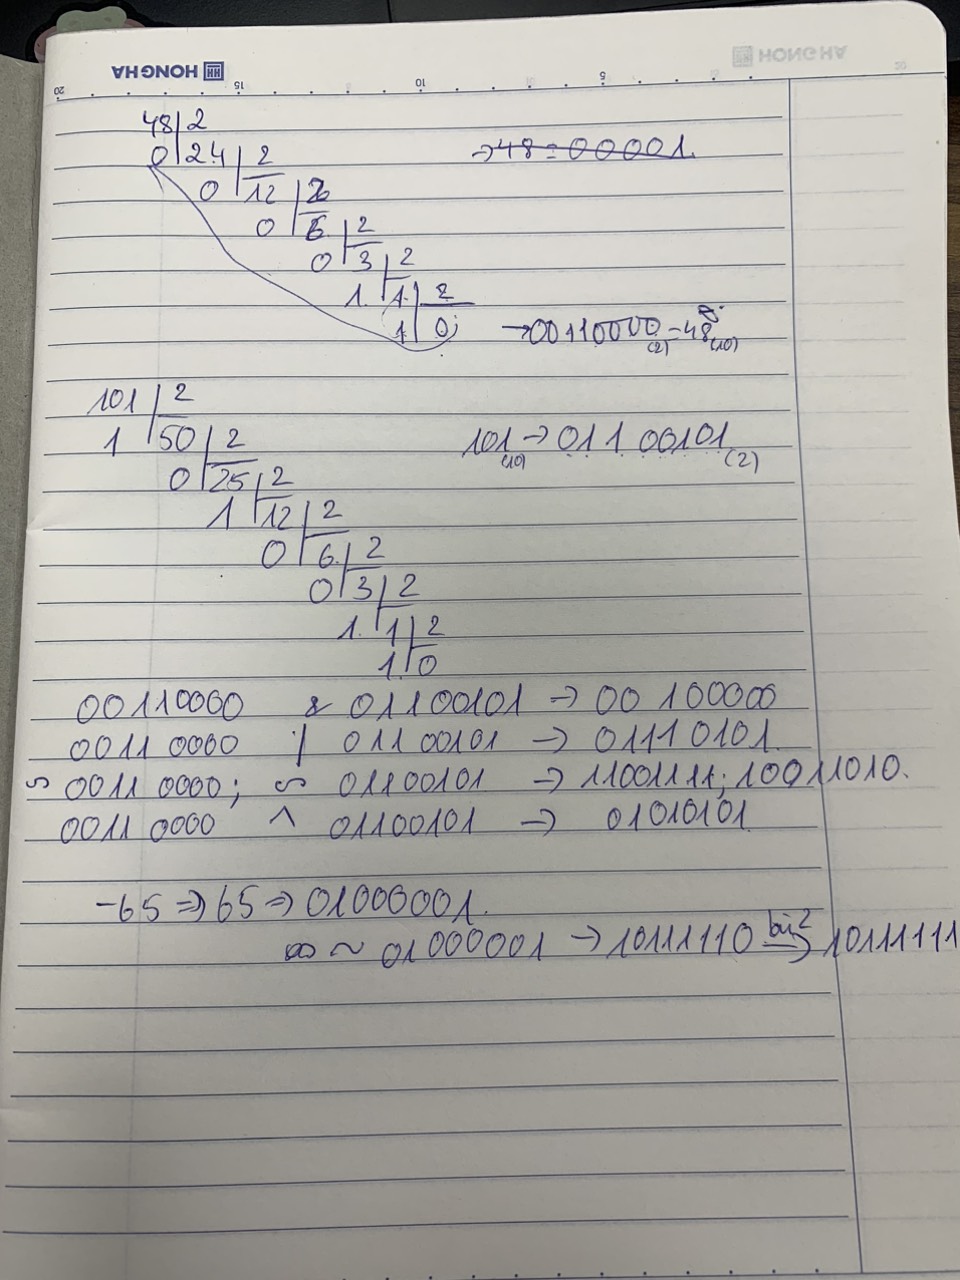 HONG HA
HONG HA
20 15 10 5
48 2
0 24 2 →48=00001.
0 12 2
0 6 2
0 3 2
1. 1. 2
1 0; →00110000(2)=48(10)
101 2
1 50 2 101(10)→01100101(2)
0 25 2
1 12 2
0 6. 2
0 3 2
1. 1 2
1. 0
00110000 & 01100101 → 00100000
00110000 | 01100101 → 01110101.
~ 00110000; ~ 01100101 → 11001111; 10011010.
00110000 ^ 01100101 → 01010101
-65 ⇒ 65 ⇒ 01000001.
~ 01000001 → 10111110 bù2 → 10111111